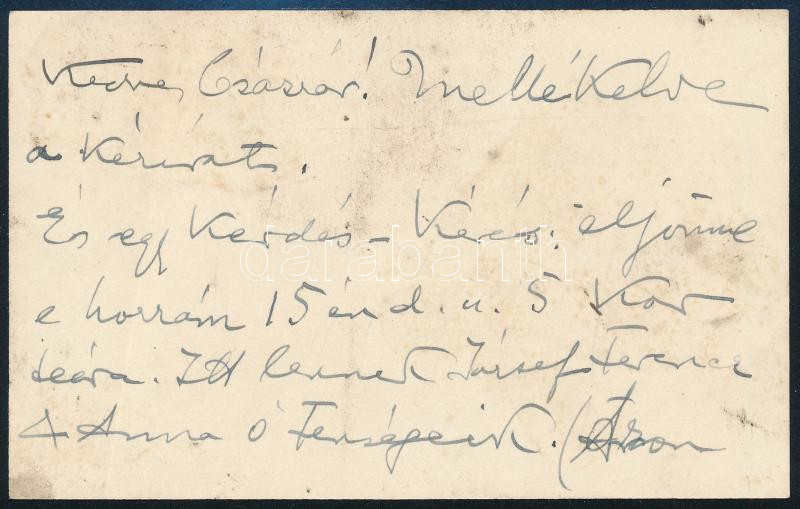 Kedves Császár! Mellékelve
a kézirat.
És egy kérdés – kérés: eljönne
e hozzám 15 én d. u. 5 kor
teára. Itt lennének József Ferenc
& Anna ő Fenségeik. (Azon
darabanth